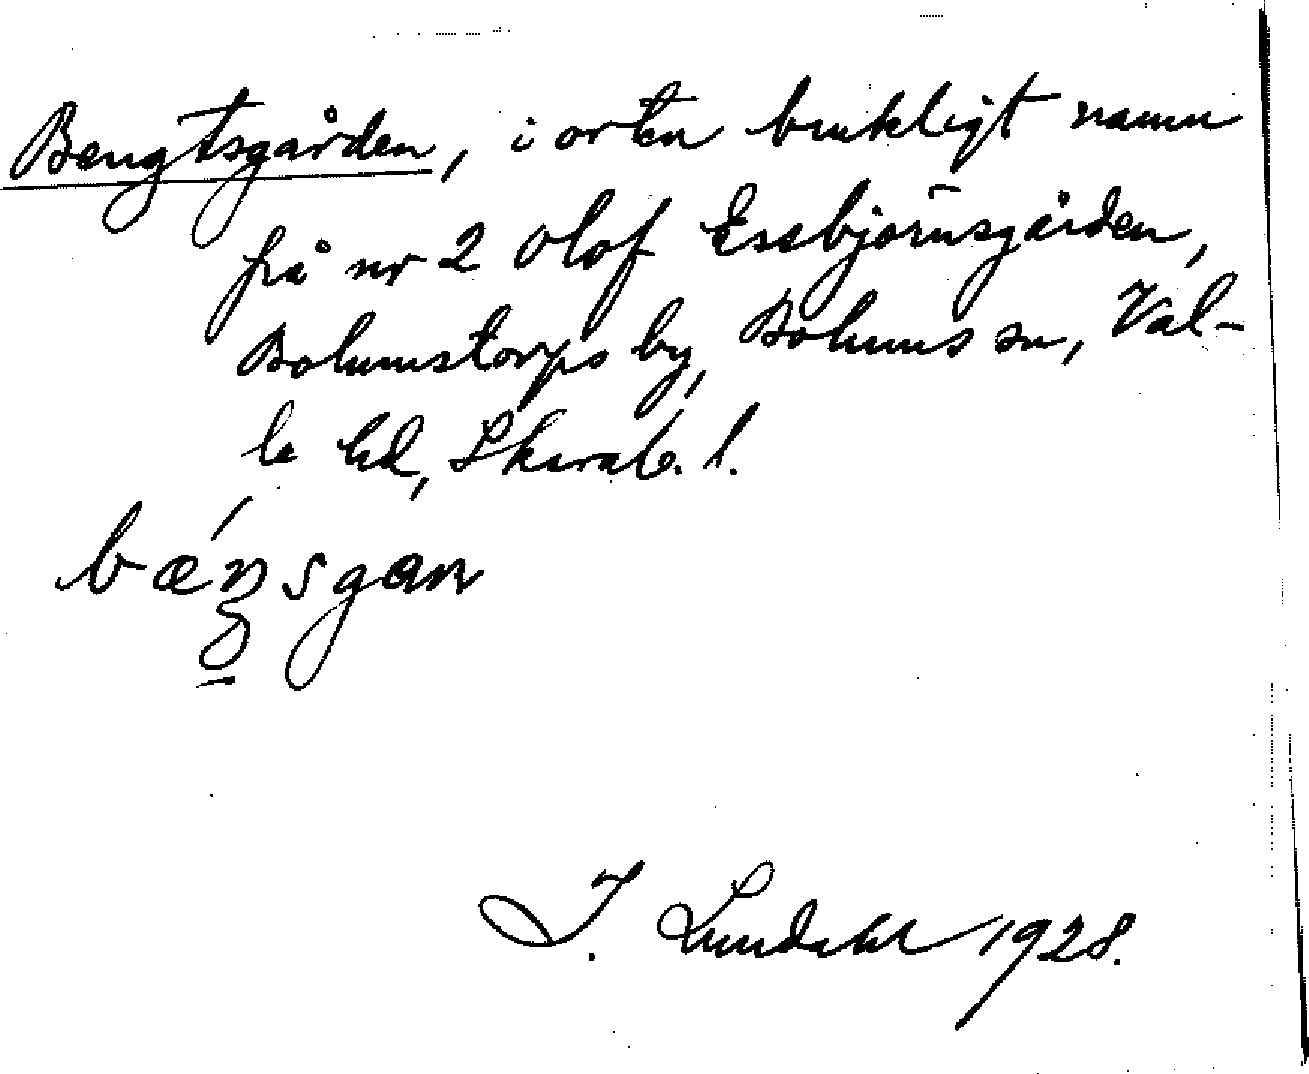 Bengtsgården, i orten brukligt namn
på nr 2 Olof Essbjörnsgården,
Bolumstorps by, Bolums sn, Val-
le hd, Skarab. l.
I. Lundahl 1928.